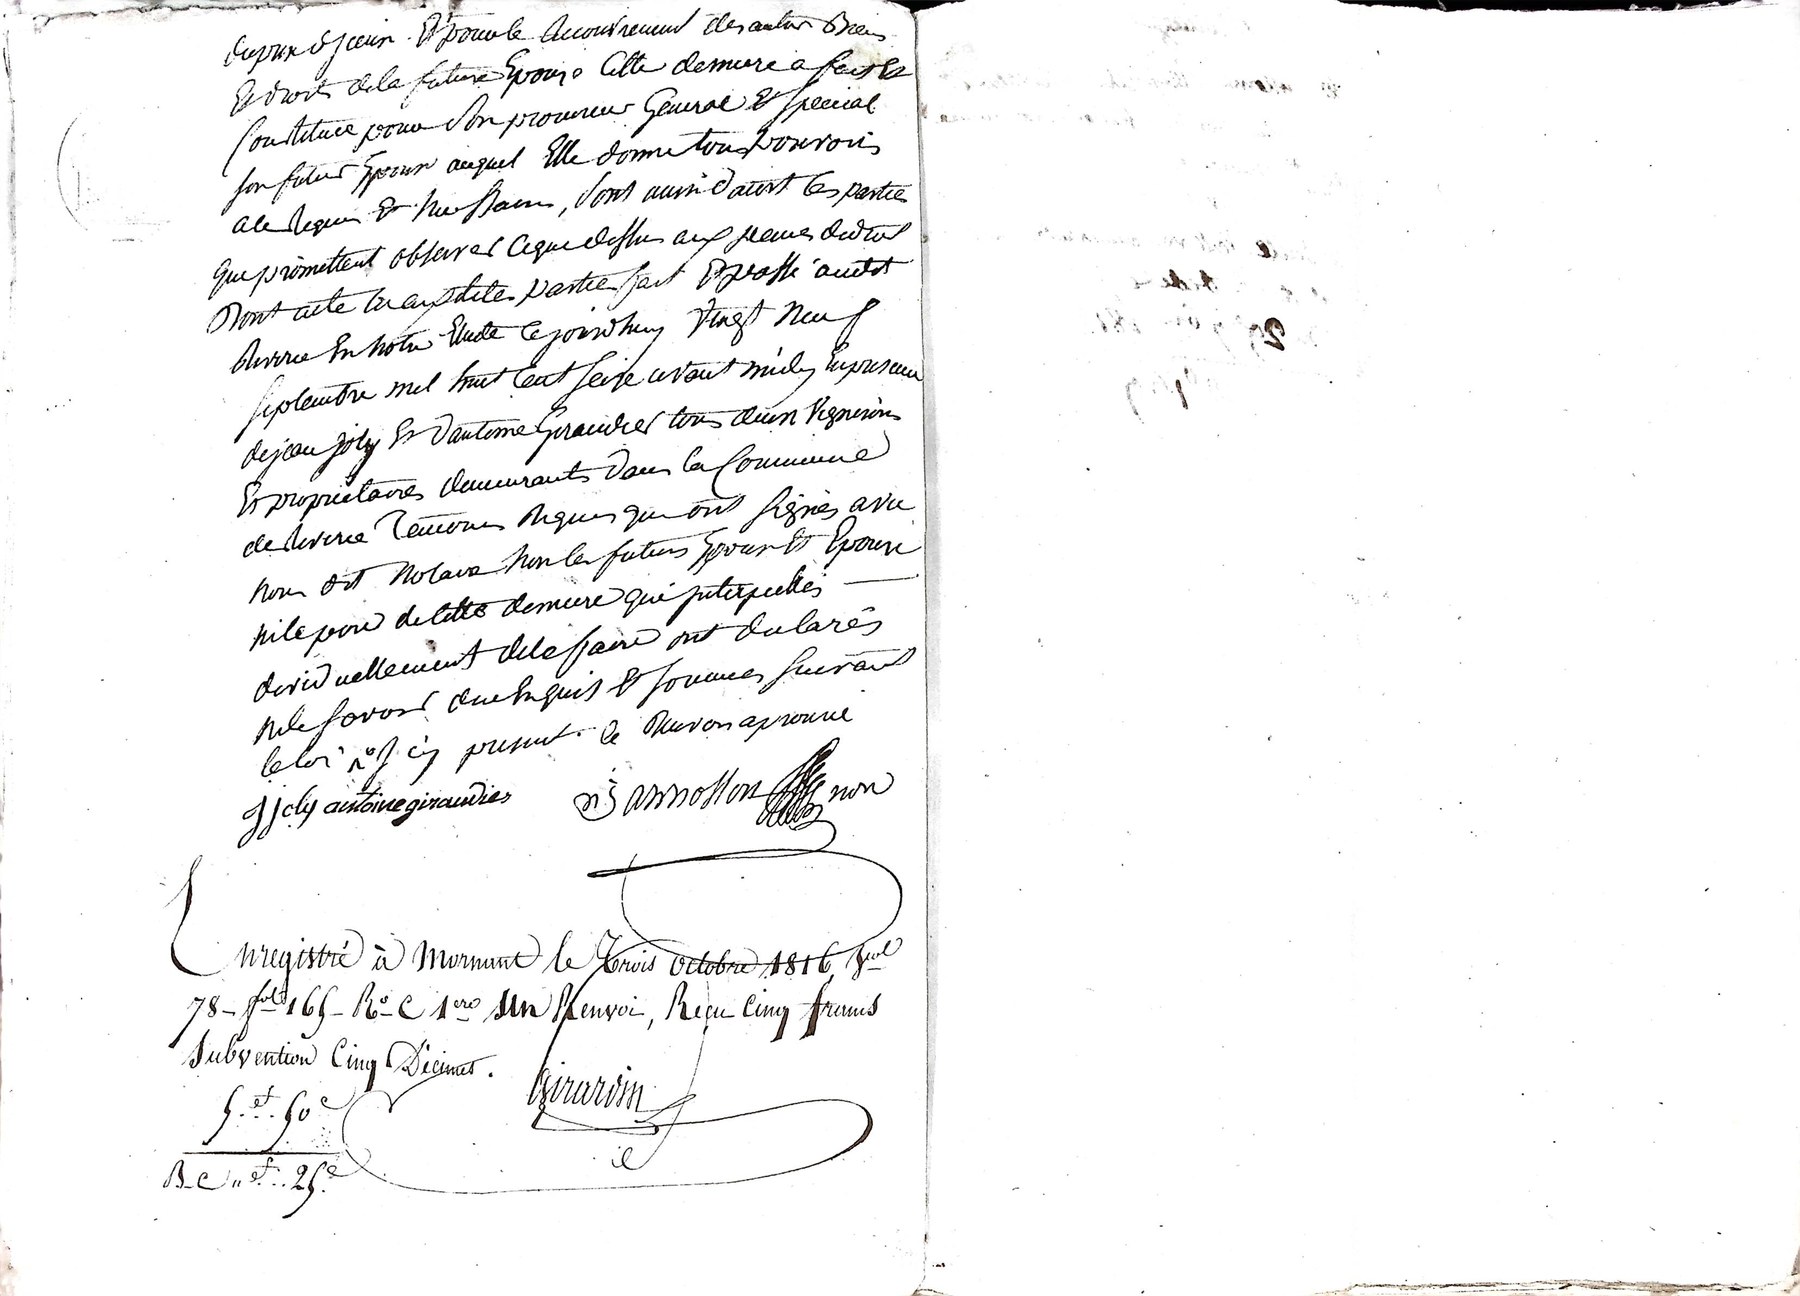 Et pour le recouvrement des autres Biens
Et droits de la future Epouse Cette derniere a fait Et
Constitué pour Son procureur General Et Special
Son futur Epoux auquel Elle donne tous pouvoirs
a ce Requis Et necessaires, Sont ainsi d'acord les parties
que promettent observer ce que dessus aux peines de droit
Dont acte lu auxdites parties fait Et passé audit
Riverie En notre Etude Ce jourdhuy Vingt Neuf
Septembre mil huit Cent Seize avant midy En presence
de jean joly Et d'antoine Giraudier tous deux Vignerons
Et proprietaires demeurants dans la Commune
de Riverie Temoins Requis qui ont Signés avec
Nous dit Notaire Non les futurs Epoux Et Epouse
ni le pere de Cette derniere qui interpellés
dividuellement de le faire ont declarés
ne le Savoir de ce Enquis Et Sommés Suivant
la loi présent. le Renvoi aprouvé
J Joly antoine giraudier non
Enregistré à Mornant le Trois Octobre 1816, Vol
78 - fol 165 - Ro C 1ere Un Renvoi, Reçu Cinq francs
Subvention Cinq Décimes.
5.. 50 c
Girardin
25 c